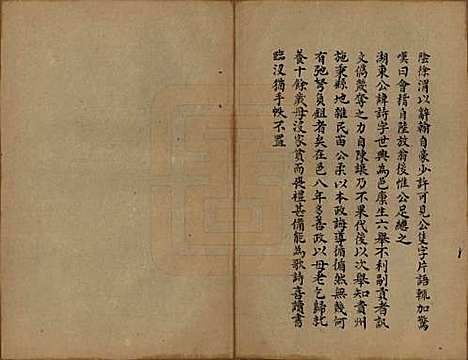 陰徐渭以辭翰自豪少許可見公隻字片語輒加驚
嘆曰會稽自陸放翁後惟公足繼之
湖東公諱詩字世興為邑廩生六舉不利副貢者訊
文偽幾奪之力自陳讓乃不果代後以次舉知貴州
施秉縣地雜民苗公柔以本政誨導循循然無幾何
有弛弩負鉏者矣在邑八年多善政以母老乞歸比
養十餘歲母沒家貧而喪禮甚備能為歌詩喜讀書
臨沒猶手帙不置